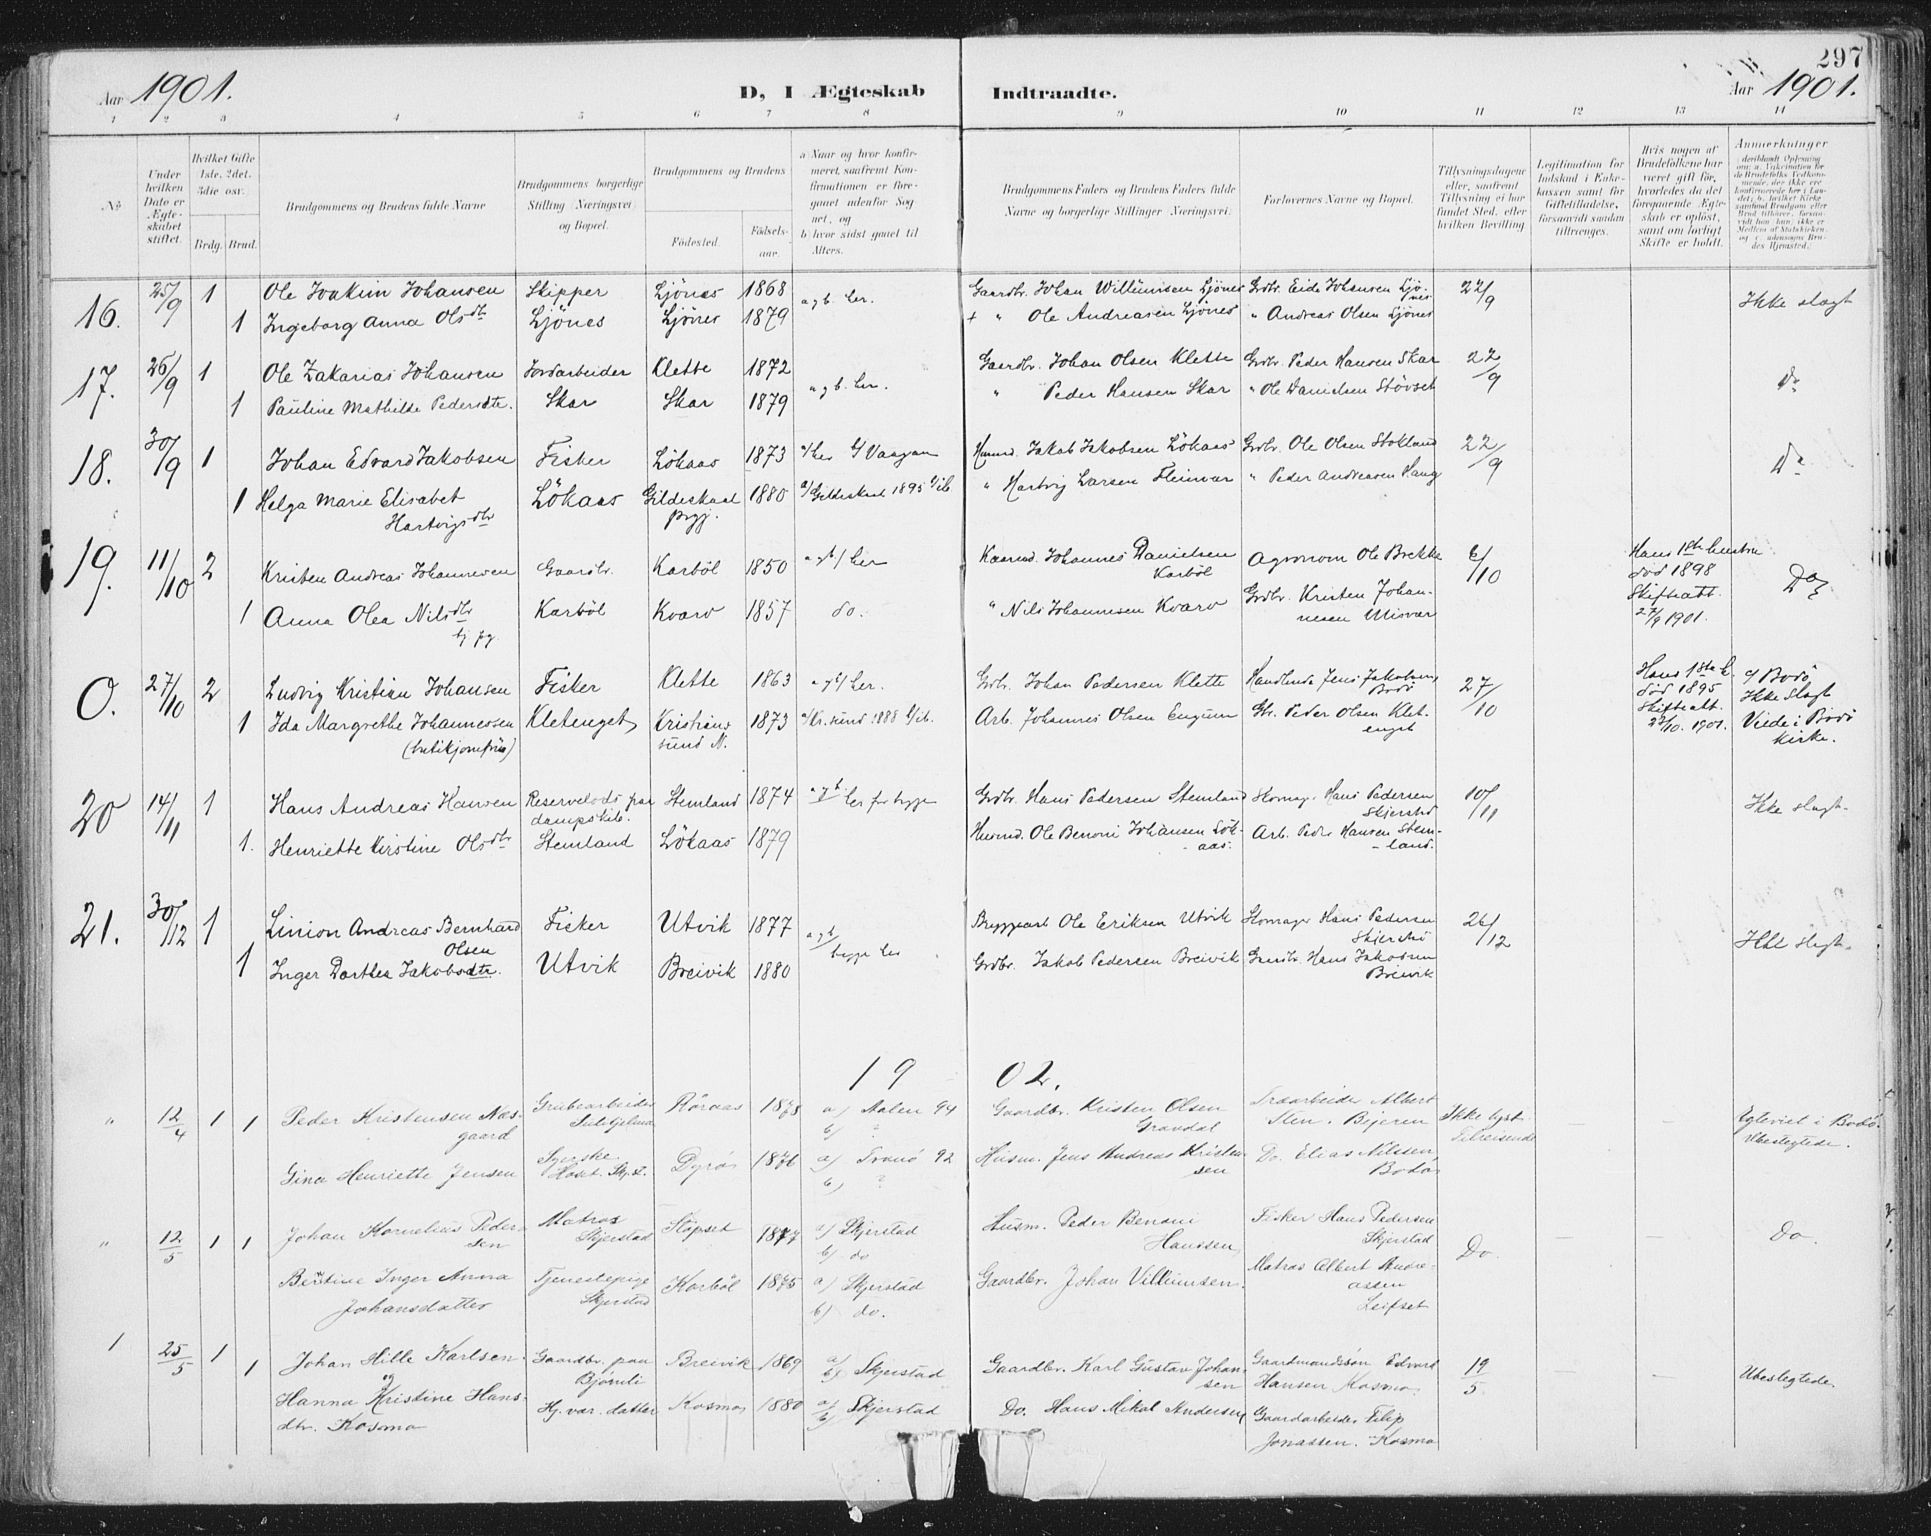 297
Aar 1901.
D, I Ægteskab Indtraadte.
Aar 1901.
1 2 3 4 5 6 7 8 9 10 11 12 13 14
No
Under hvilken Dato er Ægteskabet stiftet.
Hvilket Gifte 1ste, 2det, 3die osv.
Brdg. Brud.
Brudgommens og Brudens fulde Navne
Brudgommens borgerlige Stilling (Næringsvei) og Bopæl.
Brudgommens og Brudens
Fødested. Fødselsaar.
a Naar og hvor konfirmeret, saafremt Konfirmationen er foregaaet udenfor Sognet, og
b hvor sidst gaaet til Alters.
Brudgommens Faders og Brudens Faders fulde Navne og borgerlige Stillinger (Næringsvei).
Forlovernes Navne og Bopæl.
Tillysningsdagene eller, saafremt Tillysning ei har fundet Sted, efter hvilken Bevilling
Legitimation for Indskud i Enkekassen samt for Giftetilladelse, forsaavidt saadan tiltrænges.
Hvis nogen af Brudefolkene har været gift før, hvorledes da det foregaaende Ægteskab er opløst, samt om lovligt Skifte er holdt.
Anmærkninger
16. 25/9 1 Ole Joakim Johansen Skipper Ljönes 1868 a g b. her. Gaardbr. Johan Willumsen Ljönes Grdbr. Eide Johansen Ljönes 22/9 Ikke slagt
1 Ingeborg Anna Olsdtr Ljönes Ljönes 1879 + " Ole Andreasen Ljönes " Andreas Olsen Ljönes
17. 26/9 1 Ole Zakarias Johansen Jordarbeider Klette 1872 a g b. her. Gaardbr. Johan Olsen Klette Grdbr. Peder Hansen Skar 22/9 Do
1 Pauline Mathilde Pedersdtr. Skar Skar 1879 " Peder Hansen Skar " Ole Danielsen Stövset
18. 30/9 1 Johan Edvard Jakobsen Fisker Lökaas 1873 a/ her b/ Vaagan Husmd. Jakob Jakobsen Lökaas Grdbr. Ole Olsen Stokland 22/9 Do
1 Helga Marie Elisabet Hartvigsdtr Lökaas Gildeskaal prgj. 1880 a/ Gildeskaal 1895 b/ ib. " Hartvig Larsen Fleinvær " Peder Andreasen Haug
19. 11/10 2 Kristen Andreas Johannesen Gaardbr. Karböl 1850 a g b/ her Kaarmd. Johannes Danielsen Karböl Agronom Ole Brekke 6/10 Hans 1ste hustru död 1898 Skifteatt. 27/9 1901. Do
1 Anna Olea Nilsdtr Karböl Kvarv 1857 do. " Nils Johannesen Kvarv Grdbr. Kristen Johannesen Misvær
0. 27/10 2 Ludvig Kristian Johansen Fisker Klette 1863 a g b/ her. Grdbr. Johan Pedersen Klette Handlende Jens Jakobsen Bodö 27/10 Hans 1ste h. död 1895 Skifteatt. 23/10. 1901. Ikke slagt Viede i Bodö Kirke.
1 Ida Margrethe Johannessen (butikjomfru) Kletenget Kristianssund N. 1873 a/ Kr.sund 1888 b/ ib. Arb. Johannes Olsen Engum Gbr. Peder Olsen Kletenget
20 14/11 1 Hans Andreas Hansen Reservelods paa dampskib. Stemland 1874 a g b her for begge Grdbr. Hans Pedersen Stemland Skomager Hans Pedersen Skjerstad 10/11 Ikke slagt.
1. Henriette Kirstine Olsdtr Stemland Lökaas 1879 Husmd. Ole Benoni Johansen Lökaas. Arb. Peder Hansen Stemland.
21. 30/12 1 Linion Andreas Bernhard Olsen Fisker Utvik 1877 a g b/ begge her Byggearb. Ole Eriksen Utvik Skomager Hans Pedersen Skjerstad 26/12 Ikke slagt.
1 Inger Dorthea Jakobsdtr. Utvik Breivik 1880 Grdbr. Jakob Pedersen Breivik Gaardbr. Hans Jakobsen Breivik
1902.
" 12/4 1 1 Peder Kristensen Næsgaard Grubearbeider Sulitjelma Röraas 1878 a) Aalen 94 b) ? Gaardbr. Kristen Olsen Gravdal Træarbeider Albert Sten. Bejeren Ikke lyst Tilreisende — — Ægteviet i Bodö. Ubeslegtede.
Gina Henriette Jensen Dyrö 1876 a) Tranö 92 b) ? Husm. Jens Andreas Kristensen Do. Elias Nilssen, Bodö
" 12/5 1 1 Johan Kornelius Pedersen Matros Skjerstad Stöpset 1877 a) Skjerstad b) do Husm. Peder Benoni Hanssen Fisker Hans Pedersen Skjerstad Do. — — Do.
Bertine Inger Anna Johansdatter Tjenestepige Skjerstad Karböl 1875 a) Skjerstad b) do. Gaardbr. Johan Villumsen. Matros Albert Andreassen Leifset
1 25/5 1 1 Johan Hille Karlsen og Gaardbr. paa Bjørnli Breivik 1869 a) b) Skjerstad Gaardbr. Karl Gustav Johansen Gaardmandssön Edvard Hansen Kosmo 19/5 — — Ubeslegtede.
Hanna Kristine Hansdtr. Kosmo Hj.vær. datter Kosmo 1880 a) b) Skjerstad Do. Hans Mikal Andersen Gaardarbeider Filip Jonassen. Kosmo